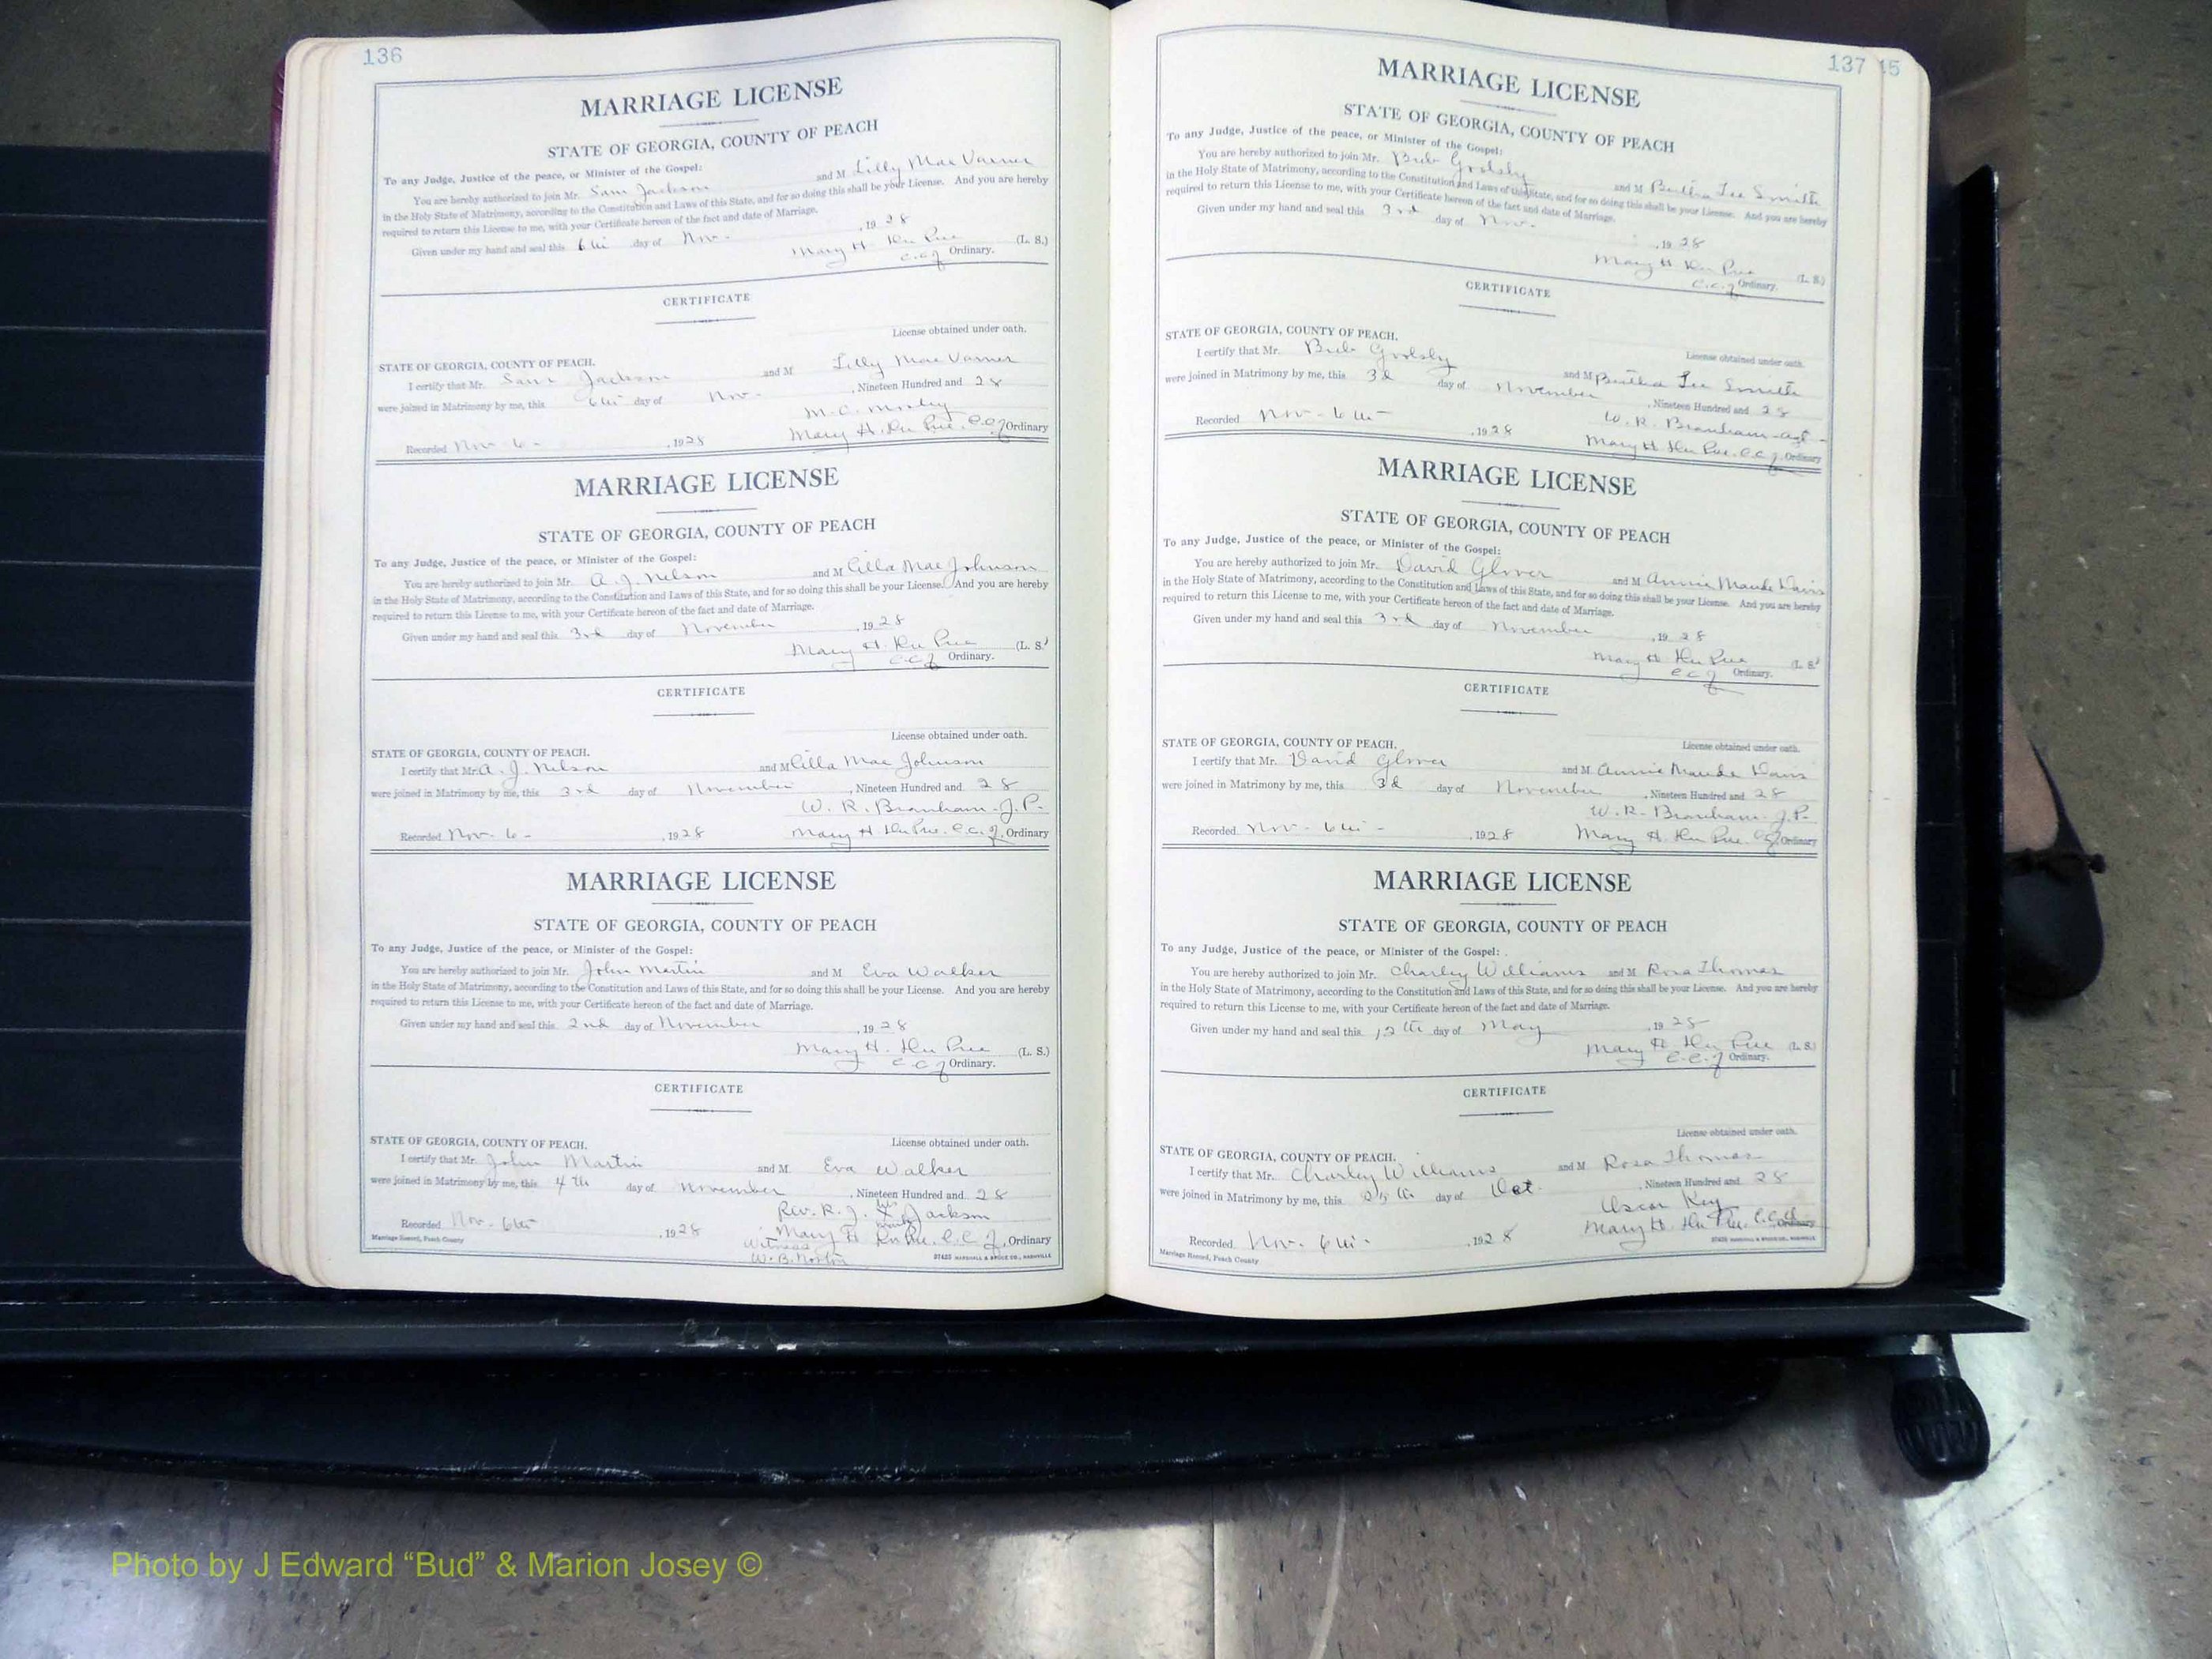 136
MARRIAGE LICENSE
STATE OF GEORGIA, COUNTY OF PEACH
To any Judge, Justice of the peace, or Minister of the Gospel:
You are hereby authorized to join Mr. Sam Jackson and M Lilly Mae Varner
in the Holy State of Matrimony, according to the Constitution and Laws of this State, and for so doing this shall be your License. And you are hereby
required to return this License to me, with your Certificate hereon of the fact and date of Marriage.
Given under my hand and seal this 6th day of Nov. , 1928
Mary H. Du Pree (L. S.)
C.C.O. Ordinary.
CERTIFICATE
License obtained under oath.
STATE OF GEORGIA, COUNTY OF PEACH.
I certify that Mr. Sam Jackson and M Lilly Mae Varner
were joined in Matrimony by me, this 6th day of Nov. , Nineteen Hundred and 28
M. C. Mosley
Recorded Nov. 6 - , 1928 Mary H. Du Pree. C.C.O. Ordinary
MARRIAGE LICENSE
STATE OF GEORGIA, COUNTY OF PEACH
To any Judge, Justice of the peace, or Minister of the Gospel:
You are hereby authorized to join Mr. A. J. Nelson and M Cilla Mae Johnson
in the Holy State of Matrimony, according to the Constitution and Laws of this State, and for so doing this shall be your License. And you are hereby
required to return this License to me, with your Certificate hereon of the fact and date of Marriage.
Given under my hand and seal this 3rd day of November , 1928
Mary H. Du Pree (L. S.)
C.C.O. Ordinary.
CERTIFICATE
License obtained under oath.
STATE OF GEORGIA, COUNTY OF PEACH.
I certify that Mr. A. J. Nelson and M Cilla Mae Johnson
were joined in Matrimony by me, this 3rd day of November , Nineteen Hundred and 28
W. R. Branham - J. P.
Recorded Nov. 6 - , 1928 Mary H Du Pree. C.C.O. Ordinary
MARRIAGE LICENSE
STATE OF GEORGIA, COUNTY OF PEACH
To any Judge, Justice of the peace, or Minister of the Gospel:
You are hereby authorized to join Mr. John Martin and M Eva Walker
in the Holy State of Matrimony, according to the Constitution and Laws of this State, and for so doing this shall be your License. And you are hereby
required to return this License to me, with your Certificate hereon of the fact and date of Marriage.
Given under my hand and seal this 2nd day of November , 1928
Mary H. Du Pree (L. S.)
C.C.O. Ordinary.
CERTIFICATE
License obtained under oath.
STATE OF GEORGIA, COUNTY OF PEACH.
I certify that Mr. John Martin and M Eva Walker
were joined in Matrimony by me, this 4th day of November , Nineteen Hundred and 28
Rev. R. J. his X mark Jackson
Recorded Nov. 6th , 1928 Mary H Du Pree. C.C.O., Ordinary
Marriage Record, Peach County Witness W. B. Norton 37425 MARSHALL & BRUCE CO., NASHVILLE
137 15
MARRIAGE LICENSE
STATE OF GEORGIA, COUNTY OF PEACH
To any Judge, Justice of the peace, or Minister of the Gospel:
You are hereby authorized to join Mr. Bub Goolsby and M Beatha Lee Smith
in the Holy State of Matrimony, according to the Constitution and Laws of this State, and for so doing this shall be your License. And you are hereby
required to return this License to me, with your Certificate hereon of the fact and date of Marriage.
Given under my hand and seal this 3rd day of Nov. , 1928
Mary H. Du Pree (L. S.)
C.C.O. Ordinary.
CERTIFICATE
License obtained under oath.
STATE OF GEORGIA, COUNTY OF PEACH.
I certify that Mr. Bub Goolsby and M Beatha Lee Smith
were joined in Matrimony by me, this 3d day of November , Nineteen Hundred and 28
W. R. Branham
Recorded Nov - 6th , 1928 Mary H. Du Pree. C.C.O. Ordinary
MARRIAGE LICENSE
STATE OF GEORGIA, COUNTY OF PEACH
To any Judge, Justice of the peace, or Minister of the Gospel:
You are hereby authorized to join Mr. David Glover and M Annie Maude Davis
in the Holy State of Matrimony, according to the Constitution and Laws of this State, and for so doing this shall be your License. And you are hereby
required to return this License to me, with your Certificate hereon of the fact and date of Marriage.
Given under my hand and seal this 3rd day of November , 1928
Mary H. Du Pree (L. S.)
C.C.O. Ordinary.
CERTIFICATE
License obtained under oath.
STATE OF GEORGIA, COUNTY OF PEACH.
I certify that Mr. David Glover and M Annie Maude Davis
were joined in Matrimony by me, this 3d day of November , Nineteen Hundred and 28
W. R. Branham J. P.
Recorded Nov - 6th - , 1928 Mary H. Du Pree C.C.O. Ordinary
MARRIAGE LICENSE
STATE OF GEORGIA, COUNTY OF PEACH
To any Judge, Justice of the peace, or Minister of the Gospel:
You are hereby authorized to join Mr. Charley Williams and M Rosa Thomas
in the Holy State of Matrimony, according to the Constitution and Laws of this State, and for so doing this shall be your License. And you are hereby
required to return this License to me, with your Certificate hereon of the fact and date of Marriage.
Given under my hand and seal this 12th day of May , 1928
Mary H. Du Pree (L. S.)
C.C.O. Ordinary.
CERTIFICATE
License obtained under oath.
STATE OF GEORGIA, COUNTY OF PEACH.
I certify that Mr. Charley Williams and M Rosa Thomas
were joined in Matrimony by me, this 25th day of Oct. , Nineteen Hundred and 28
Oscar Key
Recorded Nov. 6th - , 1928 Mary H. Du Pree. C.C.O. Ordinary
Marriage Record, Peach County 37425 MARSHALL & BRUCE CO., NASHVILLE
Photo by J Edward “Bud” & Marion Josey ©